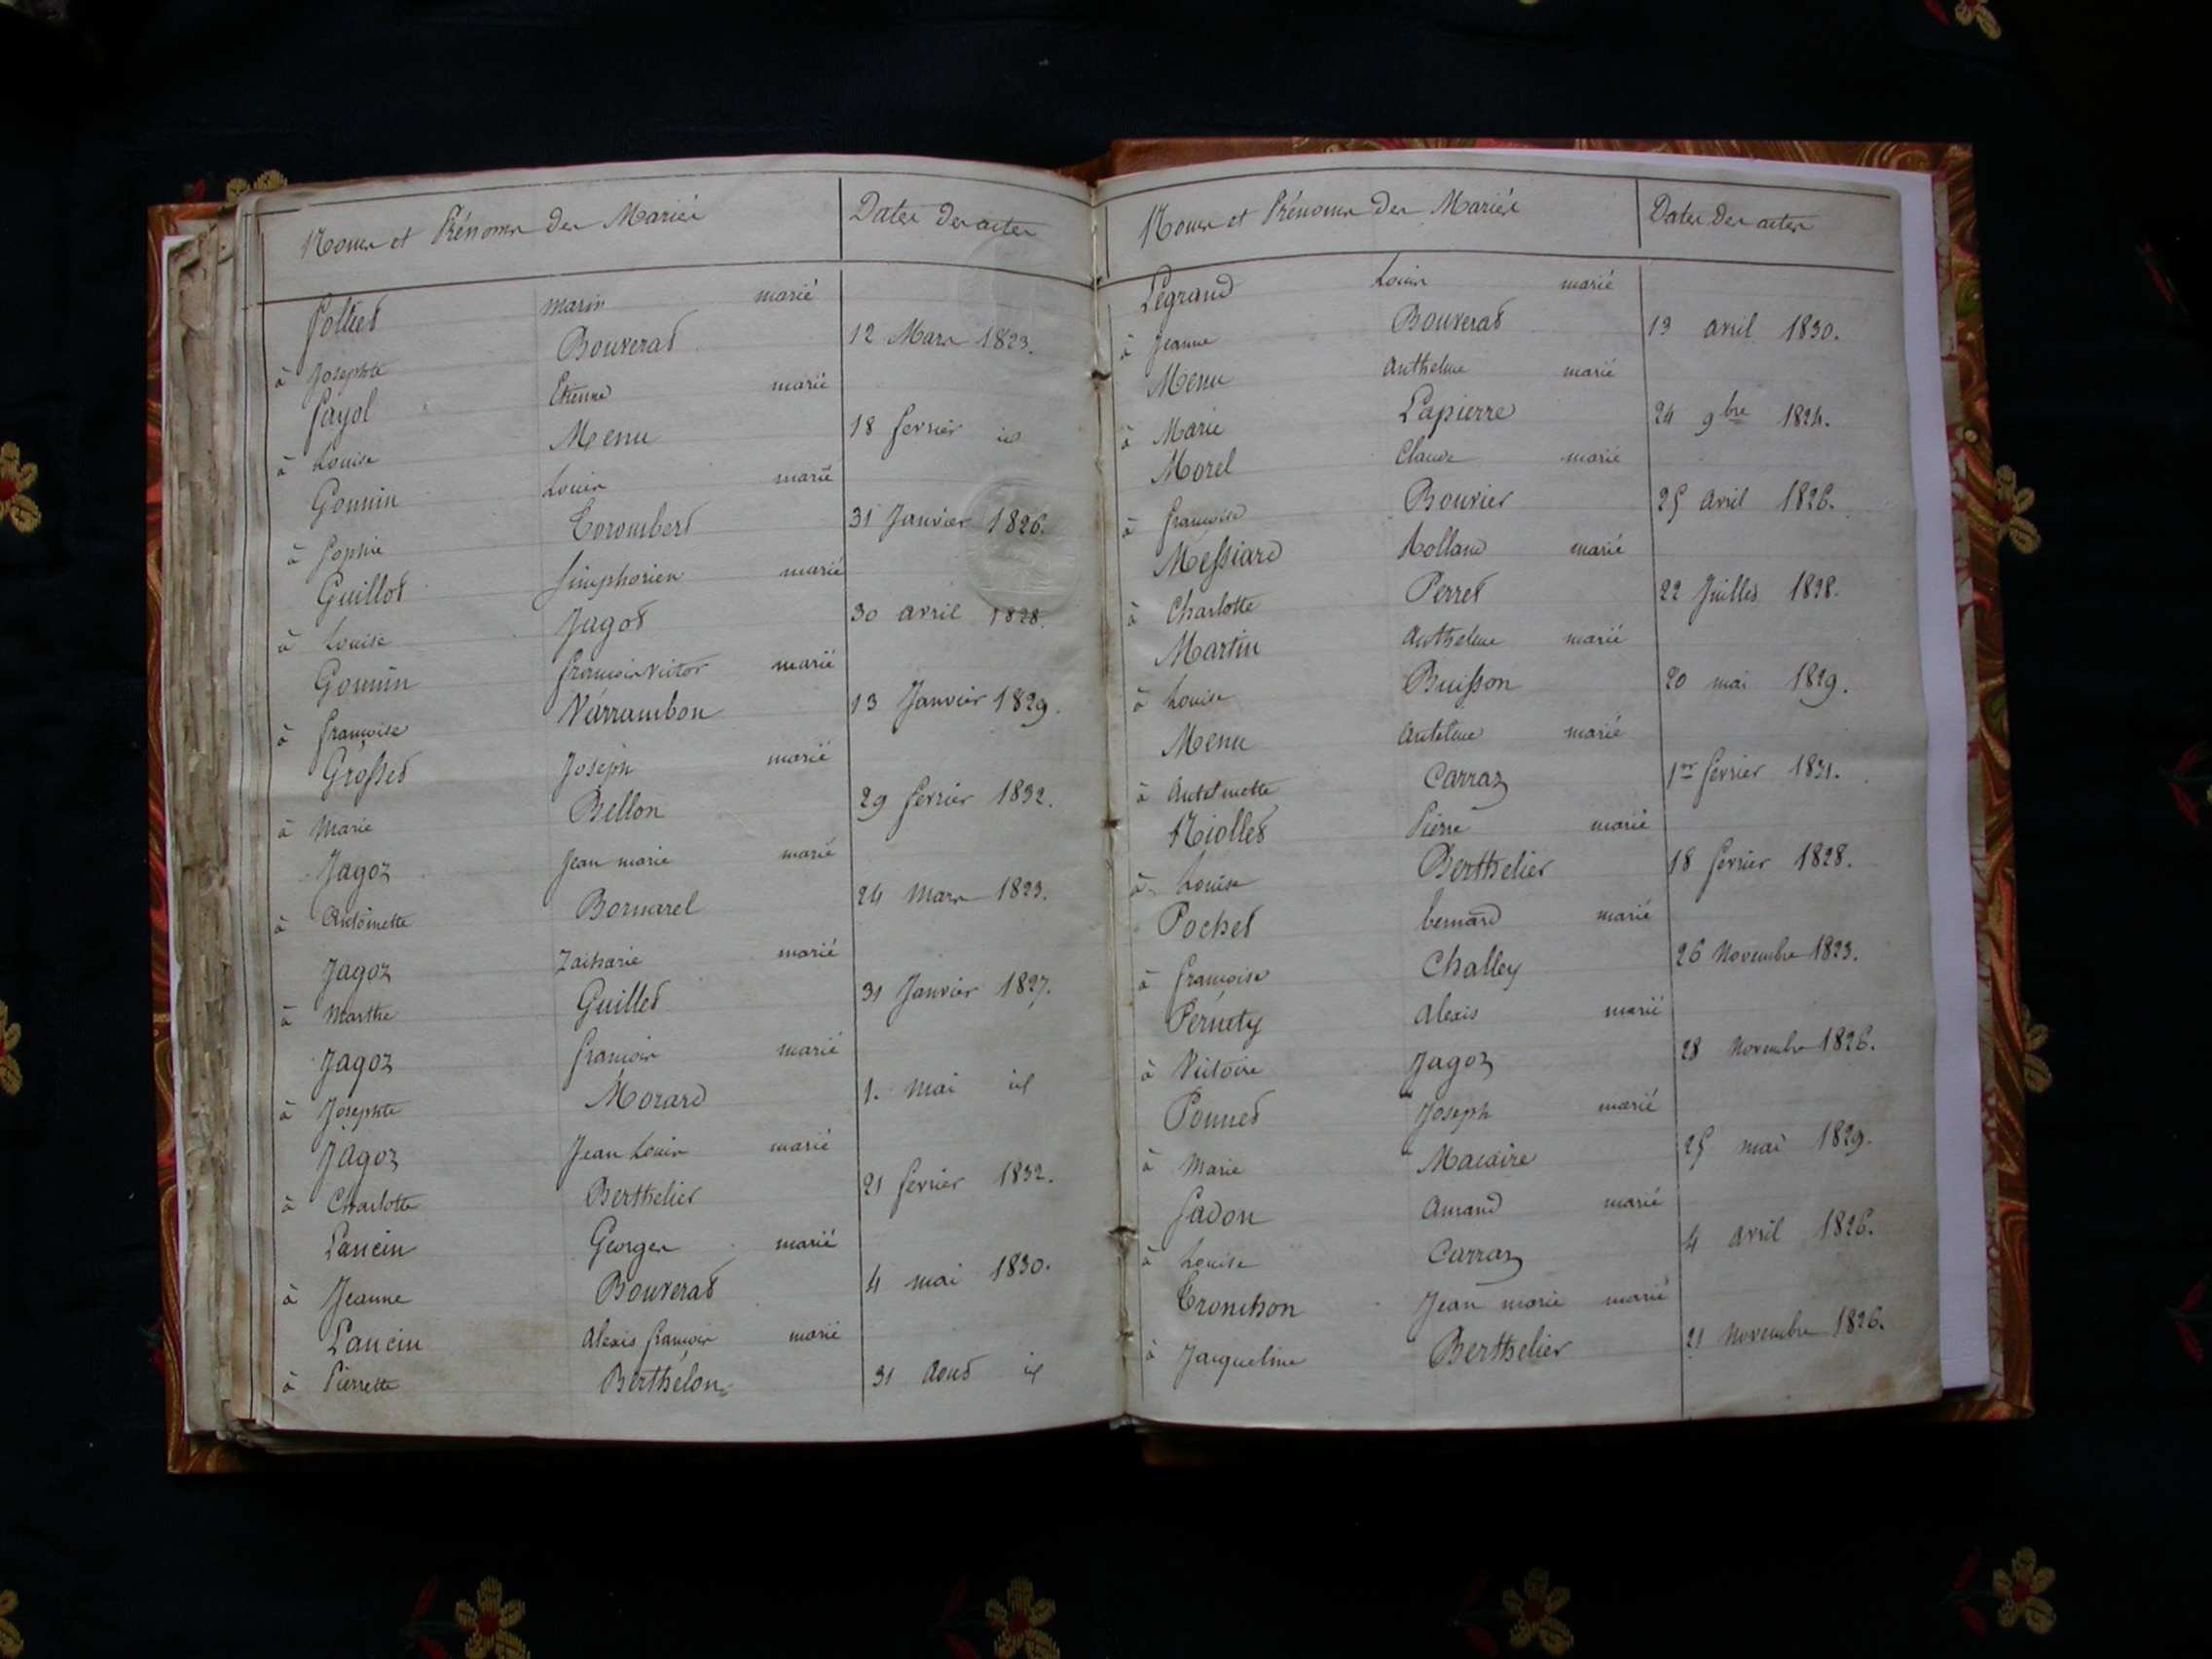 Noms et Prénoms des Mariés Dates des actes
marin marié
à Josephte Bouverat 12 Mars 1823.
Fayol Etienne marié
à Louise Menu 18 fevrier id
Gonnin Louis marié
à Sophie Corombert 31 Janvier 1826.
Guillot Simphorien marié
à Louise Jagot 30 avril 1828.
Gonnin françois victor marié
à françoise Varrambon 13 Janvier 1829.
Grosset Joseph marié
à Marie Bellon 29 fevrier 1832.
Jagoz Jean marie marié
à Antoinette Bornarel 24 Mars 1823.
Jagoz Zacharie marié
à Marthe Guillet 31 Janvier 1827.
Jagoz françois marié
à Josephte Morard 1. mai id
Jagoz Jean Louis marié
à Charlotte Berthelier 21 fevrier 1832.
Lancin Georges marié
à Jeanne Bouverat 4 mai 1830.
Lancin Alexis françois marié
à Pierrette Berthelon 31 Aout id
Noms et Prénoms des Mariés Dates des actes
Legrand Louis marié
à Jeanne Bouverat 13 avril 1830.
Menu Anthelme marié
à Marie Lapierre 24 9bre 1824.
Morel Claude marié
à françoise Bouvier 25 avril 1826.
Messiard Rolland marié
à Charlotte Perret 22 Juillet 1828.
Martin Anthelme marié
à Louise Buisson 20 mai 1829.
Menu Antelme marié
à Carraz 1er fevrier 1831.
Niollet Pierre marié
à Louise Berthelier 18 fevrier 1828.
Pochet bernard marié
à françoise Challey 26 Novembre 1823.
Pernety Alexis marié
à Victoire Jagoz 28 Novembre 1826.
Ponnet Joseph marié
à Marie Macaire 25 mai 1829.
Sadon Amand marié
à Louise Carraz 4 avril 1826.
Tronchon Jean marie marié
à Jacqueline Berthelier 21 Novembre 1826.